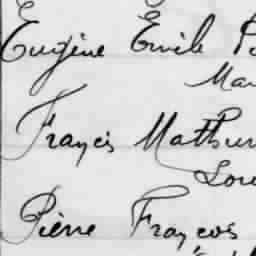 Eugène Emile P
Mar
Françis Mathur
Lou
Pierre Françcois